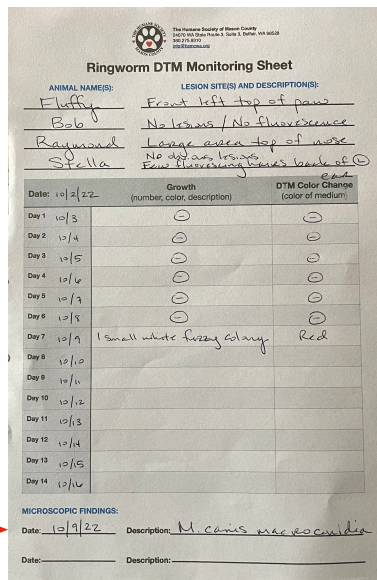 THE HUMANE SOCIETY
OF MASON COUNTY
The Humane Society of Mason County
24070 WA State Route 3, Suite 3, Belfair, WA 98528
360.275.9310
info@hsmcwa.org
Ringworm DTM Monitoring Sheet
ANIMAL NAME(S): LESION SITE(S) AND DESCRIPTION(S):
Fluffy Front left top of paw
Bob No lesions / No fluorescence
Raymond Large area top of nose
Stella No obvious lesions
Few fluorescing hairs back of L
ear
Date: 10/2/22 Growth (number, color, description) DTM Color Change (color of medium)
Day 1 10/3 - -
Day 2 10/4 - -
Day 3 10/5 - -
Day 4 10/6 - -
Day 5 10/7 - -
Day 6 10/8 - -
Day 7 10/9 1 small white fuzzy colony Red
Day 8 10/10
Day 9 10/11
Day 10 10/12
Day 11 10/13
Day 12 10/14
Day 13 10/15
Day 14 10/16
MICROSCOPIC FINDINGS:
Date: 10/9/22 Description: M. canis macroconidia
Date: Description: